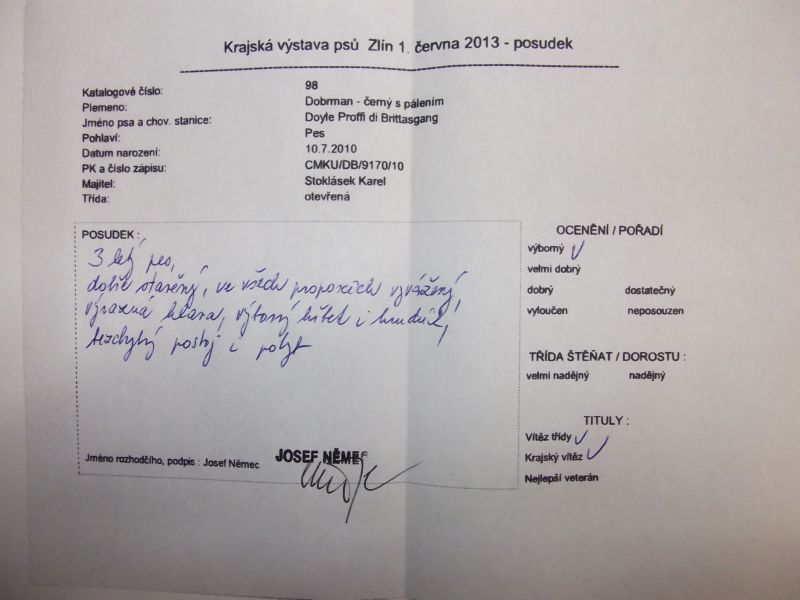 Krajská výstava psů Zlín 1. června 2013 - posudek
Katalogové číslo: 98
Plemeno: Dobrman - černý s pálením
Jméno psa a chov. stanice: Doyle Proffi di Brittasgang
Pohlaví: Pes
Datum narození: 10.7.2010
PK a číslo zápisu: CMKU/DB/9170/10
Majitel: Stoklásek Karel
Třída: otevřená
POSUDEK :
3 letý pes,
dobře stavěný, ve všech proporcích vyvážený,
výrazná hlava, výborný hřbet i hrudník,
bezchybný postoj i pohyb
Jméno rozhodčího, podpis : Josef Němec
JOSEF NĚMEC
OCENĚNÍ / POŘADÍ
výborný
velmi dobrý
dobrý dostatečný
vyloučen neposouzen
TŘÍDA ŠTĚŇAT / DOROSTU :
velmi nadějný nadějný
TITULY :
Vítěz třídy
Krajský vítěz
Nejlepší veterán